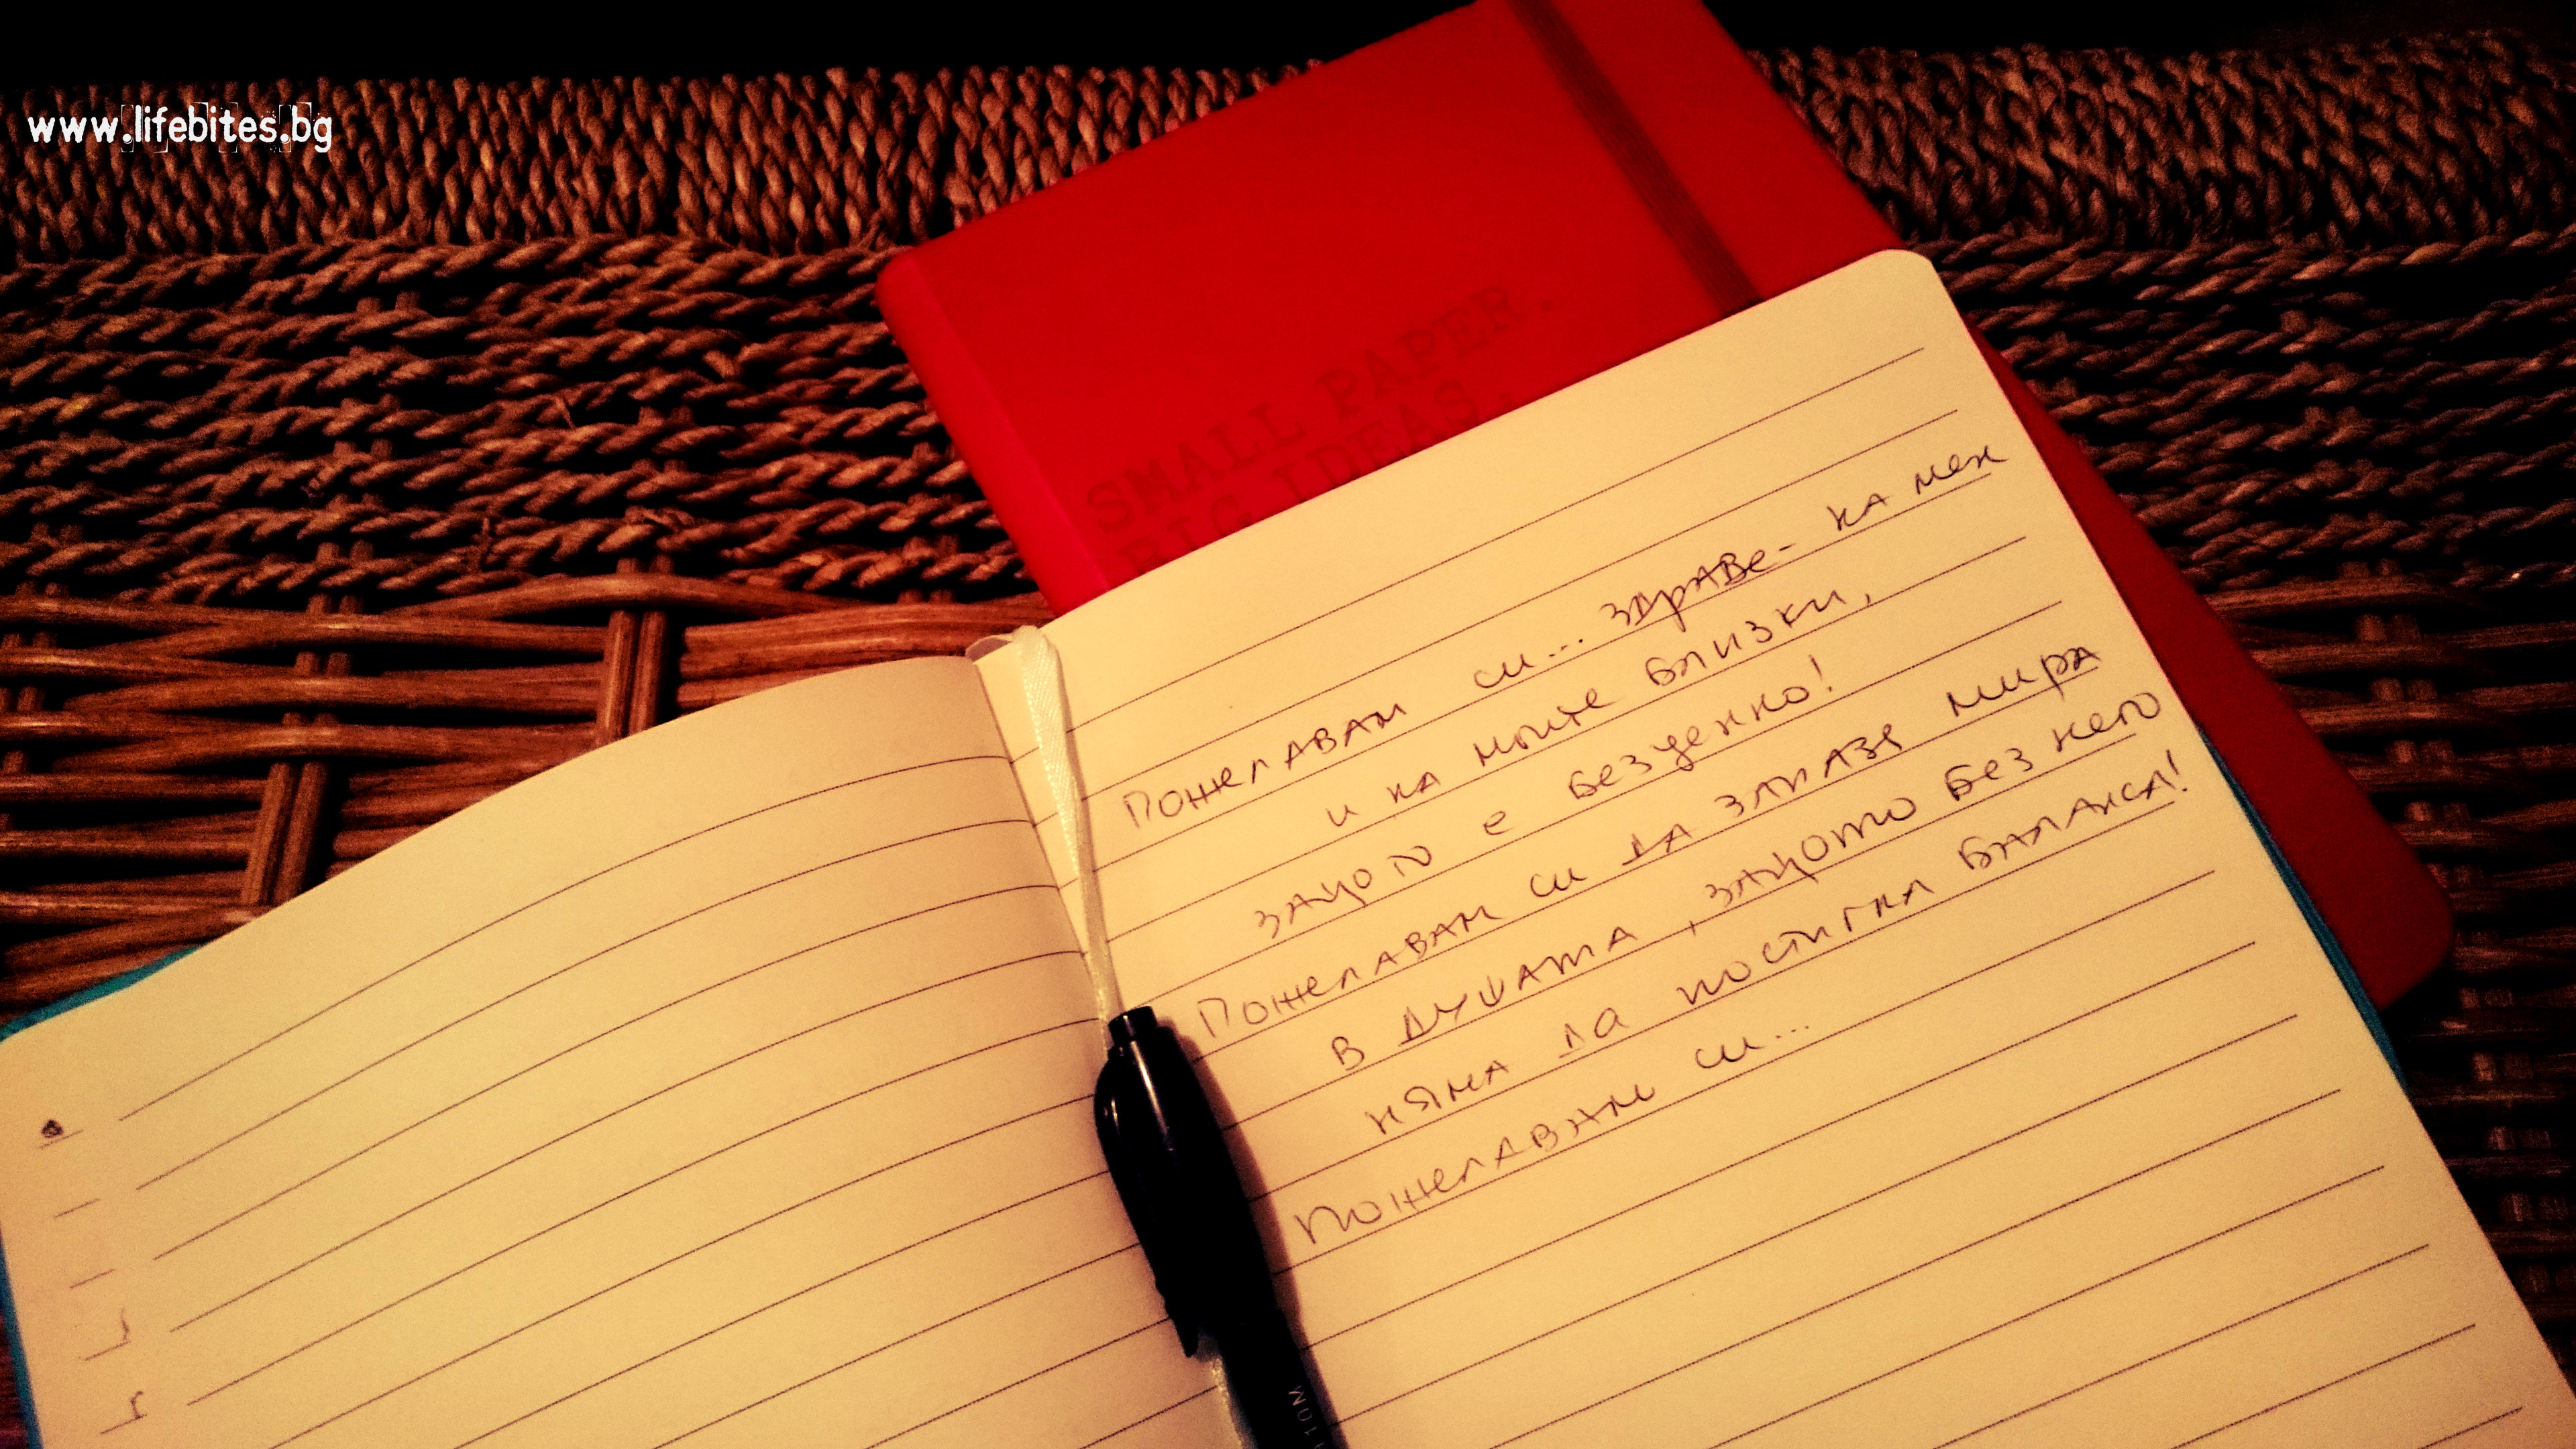 www.lifebites.bg
SMALL PAPER.
BIG IDEAS.
Пожелавам си... здраве - на мен
и на моите близки,
защото е безценно!
Пожелавам си да запазя мира
в душата, защото без него
няма да постигна баланса!
Пожелавам си...